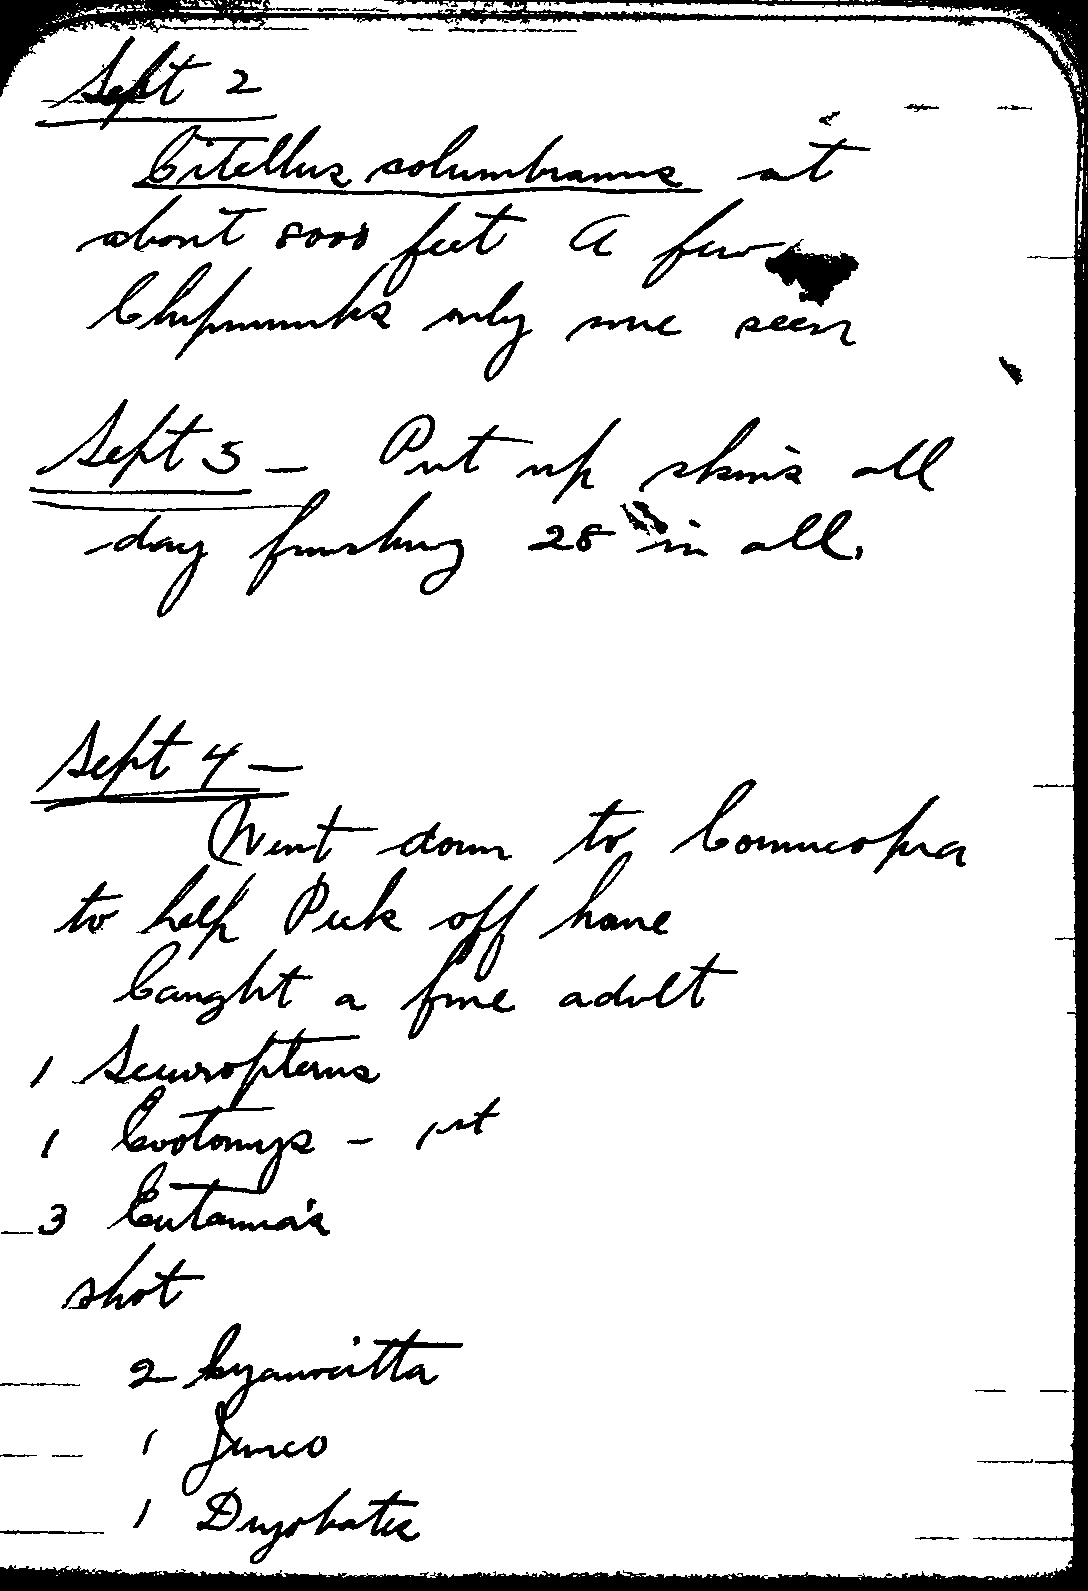 Sept 2
Citellus columbianus at
about 8000 feet A few
Chipmunks only one seen
Sept 3 — Put up skins all
day finishing 28 in all.
Sept 4 —
Went down to Cornucopia
to help Pick off hane
Caught a fine adult
1 Sciuropterus
1 Evotomys – 1st
3 Eutamia's
shot
2 Cyanocitta
1 Junco
1 Dryobates